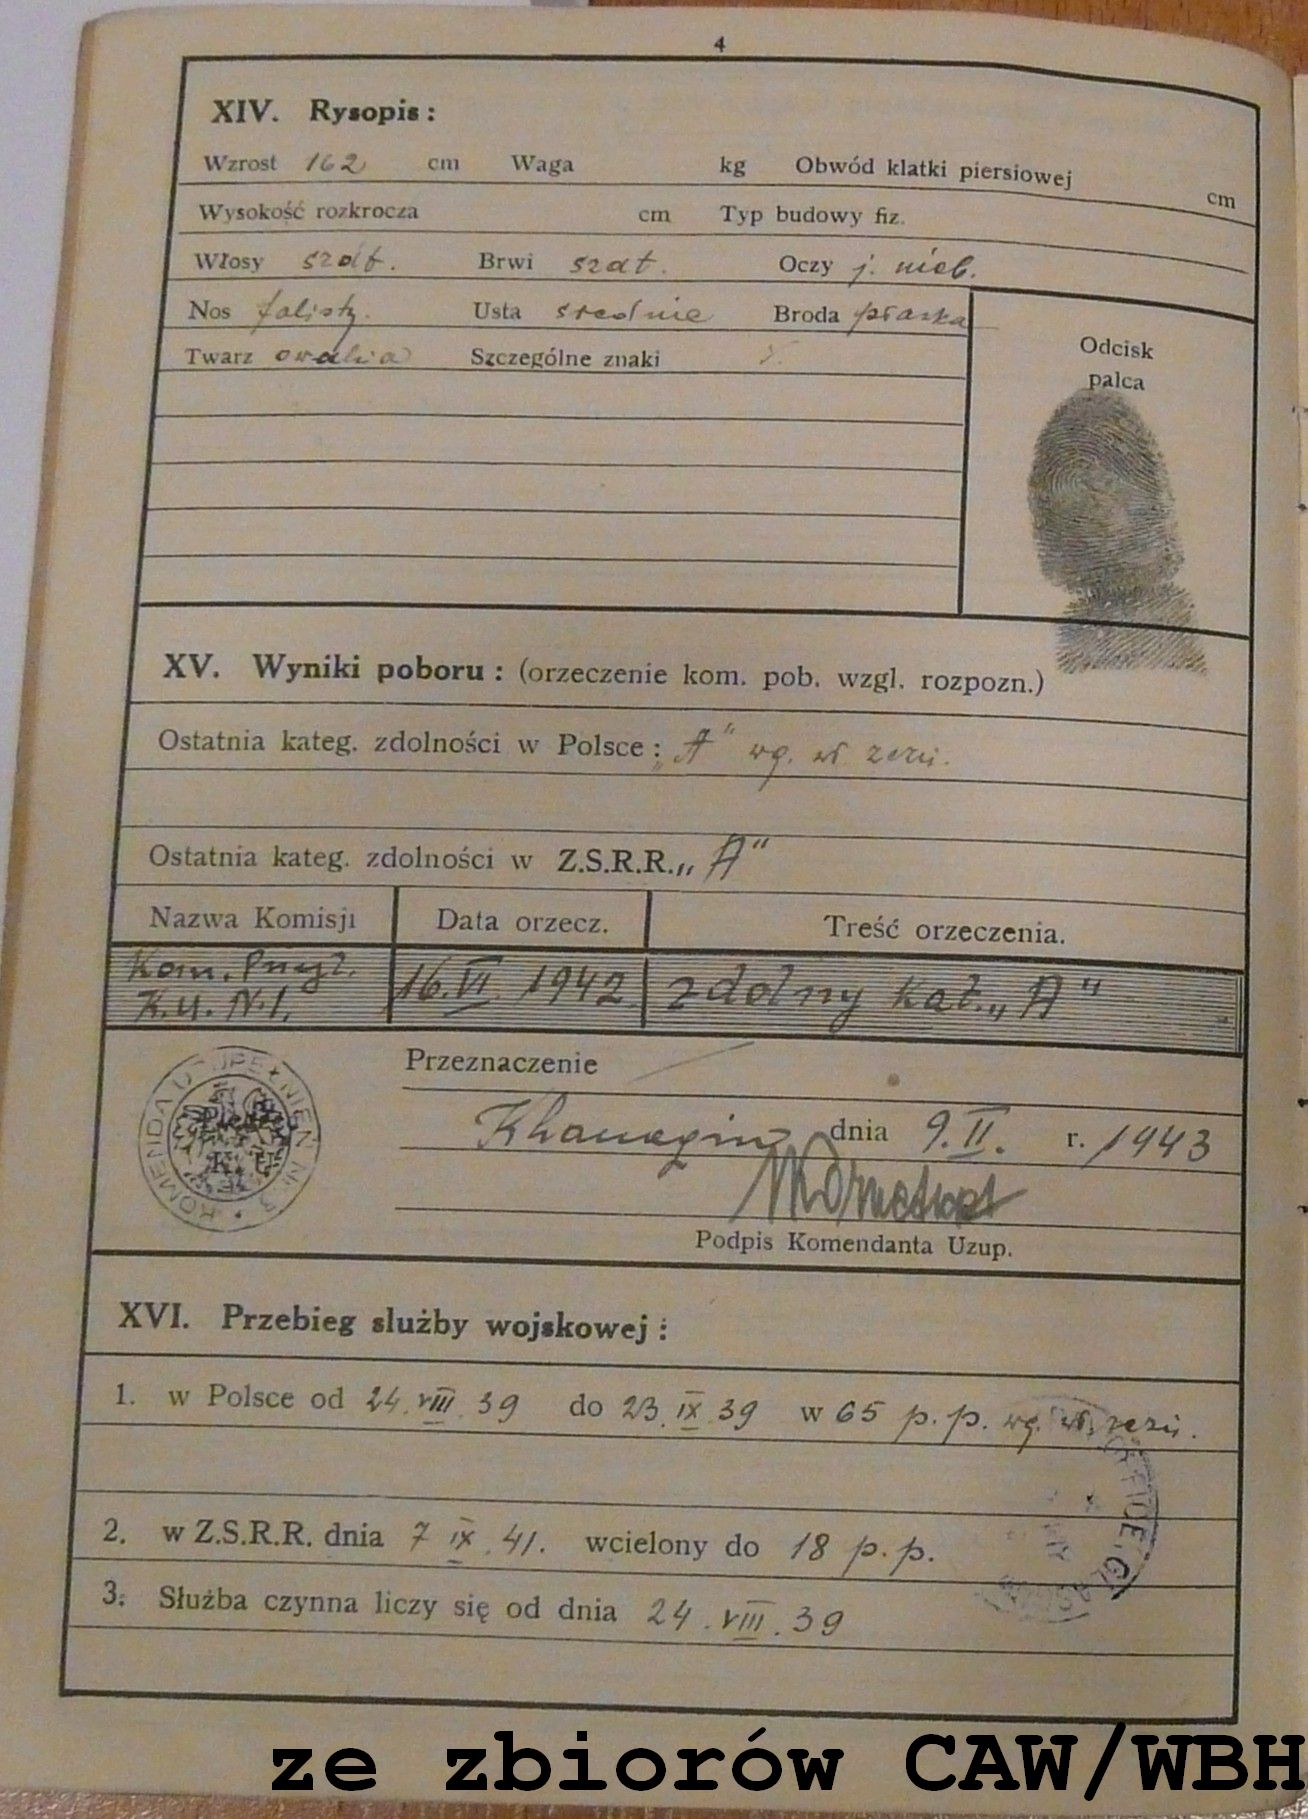 4
XIV. Rysopis :
Wzrost 162 cm Waga kg Obwód klatki piersiowej cm
Wysokość rozkrocza cm Typ budowy fiz.
Włosy szat. Brwi szat. Oczy j. nieb.
Nos falisty. Usta średnie Broda płaska
Twarz owalna Szczególne znaki
Odcisk
palca
XV. Wyniki poboru : (orzeczenie kom. pob. wzgl. rozpozn.)
Ostatnia kateg. zdolności w Polsce : „A" wg. wł zezn.
Ostatnia kateg. zdolności w Z.S.R.R. „A"
Nazwa Komisji Data orzecz. Treść orzeczenia.
Kom. 16.VI 1942 zdolny kat. „A"
K.U. N.1.
Przeznaczenie
Khanaqin dnia 9.II. r. 1943
Podpis Komendanta Uzup.
KOMENDA UZUPEŁNIEŃ Nr. 3
K U
XVI. Przebieg służby wojskowej :
1. w Polsce od 24.VIII.39 do 23.IX.39 w 65 p.p. wg. wł. zezn.
2. w Z.S.R.R. dnia 7 IX.41. wcielony do 18 p.p.
3. Służba czynna liczy się od dnia 24.VIII.39
ze zbiorów CAW/WBH